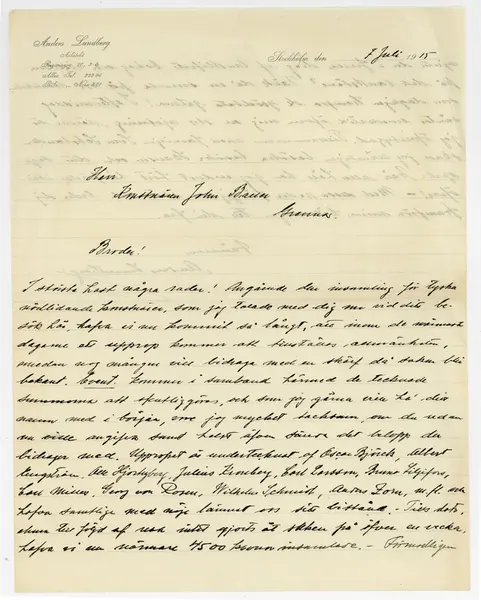 Anders Lundberg
Stockholm den 7 Juli 1915
Herr
Konstnären John Bauer
Grenna.
Broder!
I största hast några rader! Angående den insamling för tyska
nödlidande konstnärer, som jag talade med dig om vid ditt be-
sök här, hafva vi nu kommit så långt, att inom de närmaste
dagarne ett upprop kommer att
medan nog mången vill bidraga med en skärf då saken bli
bekant. Event. kommer i samband härmed de tecknade
summorna att offentliggöras, och som jag gärna ville ha ditt
namn med i början, vore jag mycket tacksam, om du redan
nu ville angifva samt helst äfven sända det belopp du
bidrager med. Uppropet är undertecknat af Oscar Björck, Albert
Engström, Olle Hjortzberg, Julius Kronberg, Carl Larsson, Bruno Liljefors,
Carl Milles, Georg von Rosen, Wilhelm Smith, Anders Zorn, m.fl. och
hafva samtliga med nöje lämnat oss sitt bistånd. - Tills dato,
ehuru till följd af
hafva vi nu närmare 4500 kronor insamlade. - Förmodligen